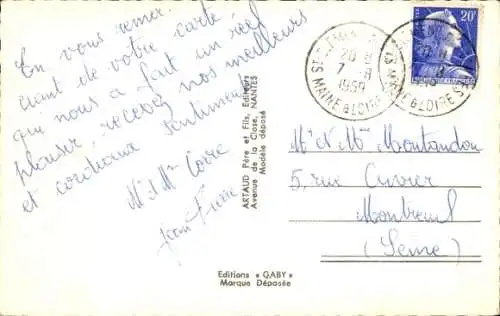 En vous remer-
ciant de votre carte
qui nous a fait un réel
plaisir, recevez nos meilleurs
et cordiaux sentiments
Mr et Mme
Jean Pierre
ARTAUD Père et Fils, Editeurs
Avenue de la Close, NANTES
Modèle déposé
Editions « GABY »
Marque Déposée
20 H
7 - 11
1959
MAINE & LOIRE
20F
Mr et Mme Montandon
5, rue Cuvier
Montreuil
(Seine)